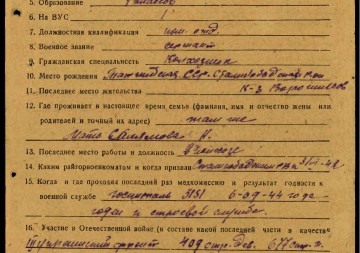 5. Образование
6. На ВУС 1
7. Должностная квалификация
8. Военное звание сержант
9. Гражданская специальность Колхозник
10. Место рождения Таджикская ССР. Сталинабадский
11. Последнее место жительства к-з Ворошилов
12. Где проживает в настоящее время семья (фамилия, имя и отчество жены или
родителей и точный их адрес) там же
Мать
13. Последнее место работы и должность
14. Каким райгорвоенкоматом и когда призван
15. Когда и где проходил последний раз медкомиссию и результат годности к
военной службе госпиталь 5151 6-09-44 года
годен к строевой службе.
16. Участие в Отечественной войне (в составе какой последней части в качестве
украинский фронт 409 стр. див. 677 стр. п.